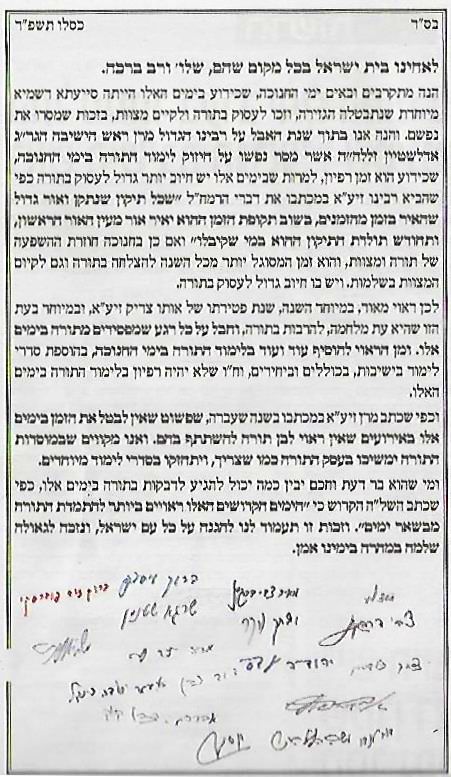 בס"ד כסלו תשפ"ד
לאחינו בית ישראל בכל מקום שהם, שלו' ורב ברכה.
הנה מתקרבים ובאים ימי החנוכה, שכידוע בימים האלו הייתה סייעתא דשמיא
מיוחדת שנתבטלה הגזירה, וזכו לעסוק בתורה ולקיים מצוות, בזכות שמסרו את
נפשם. והנה אנו בתוך שנת האבל על רבינו הגדול מרן ראש הישיבה הגר"ג
אדלשטיין זללה"ה אשר מסר נפשו על חיזוק לימוד התורה בימי החנוכה,
שכידוע הוא זמן רפיון, למרות שבימים אלו יש חיוב יותר גדול לעסוק בתורה כפי
שהביא רבינו זיע"א במכתבו את דברי הרמח"ל "שכל תיקון שנתקן ואור גדול
שהאיר בזמן מהזמנים, בשוב תקופת הזמן ההוא יאיר אור מעין האור הראשון,
ותחודש תולדת התיקון ההוא במי שקיבלו" ואם כן בחנוכה חוזרת ההשפעה
של תורה ומצוות, והוא זמן המסוגל יותר מכל השנה להצלחה בתורה וגם לקיום
המצוות בשלמות. ויש בו חיוב גדול לעסוק בתורה.
לכן ראוי מאוד, במיוחד השנה, שנת פטירתו של אותו צדיק זיע"א, ובמיוחד בעת
הזו שהיא עת מלחמה, להרבות בתורה, וחבל על כל רגע שמפסידים מתורה בימים
אלו. ומן הראוי להוסיף עוד ועוד בלימוד התורה בימי החנוכה, בהוספת סדרי
לימוד בישיבות, בכוללים וביחידים, וח"ו שלא יהיה רפיון בלימוד התורה בימים
האלו.
וכפי שכתב מרן זיע"א במכתבו בשנה שעברה, שפשוט שאין לבטל את הזמן בימים
אלו באירועים שאין ראוי לבן תורה להשתתף בהם. ואנו מקווים שבמוסדות
התורה ימשיכו בעסק התורה כמו שצריך, ויתחזקו בסדרי לימוד מיוחדים.
ומי שהוא בר דעת וחכם יבין כמה יכול להגיע לדבקות בתורה בימים אלו, כפי
שכתב השל"ה הקדוש כי "הימים הקדושים האלו ראויים ביותר להתמדת התורה
מבשאר ימים". וזכות זו תעמוד לנו להגנה על כל עם ישראל, ונזכה לגאולה
שלמה במהרה בימינו אמן.
ברוך
שרגא שטינמן
יהודה